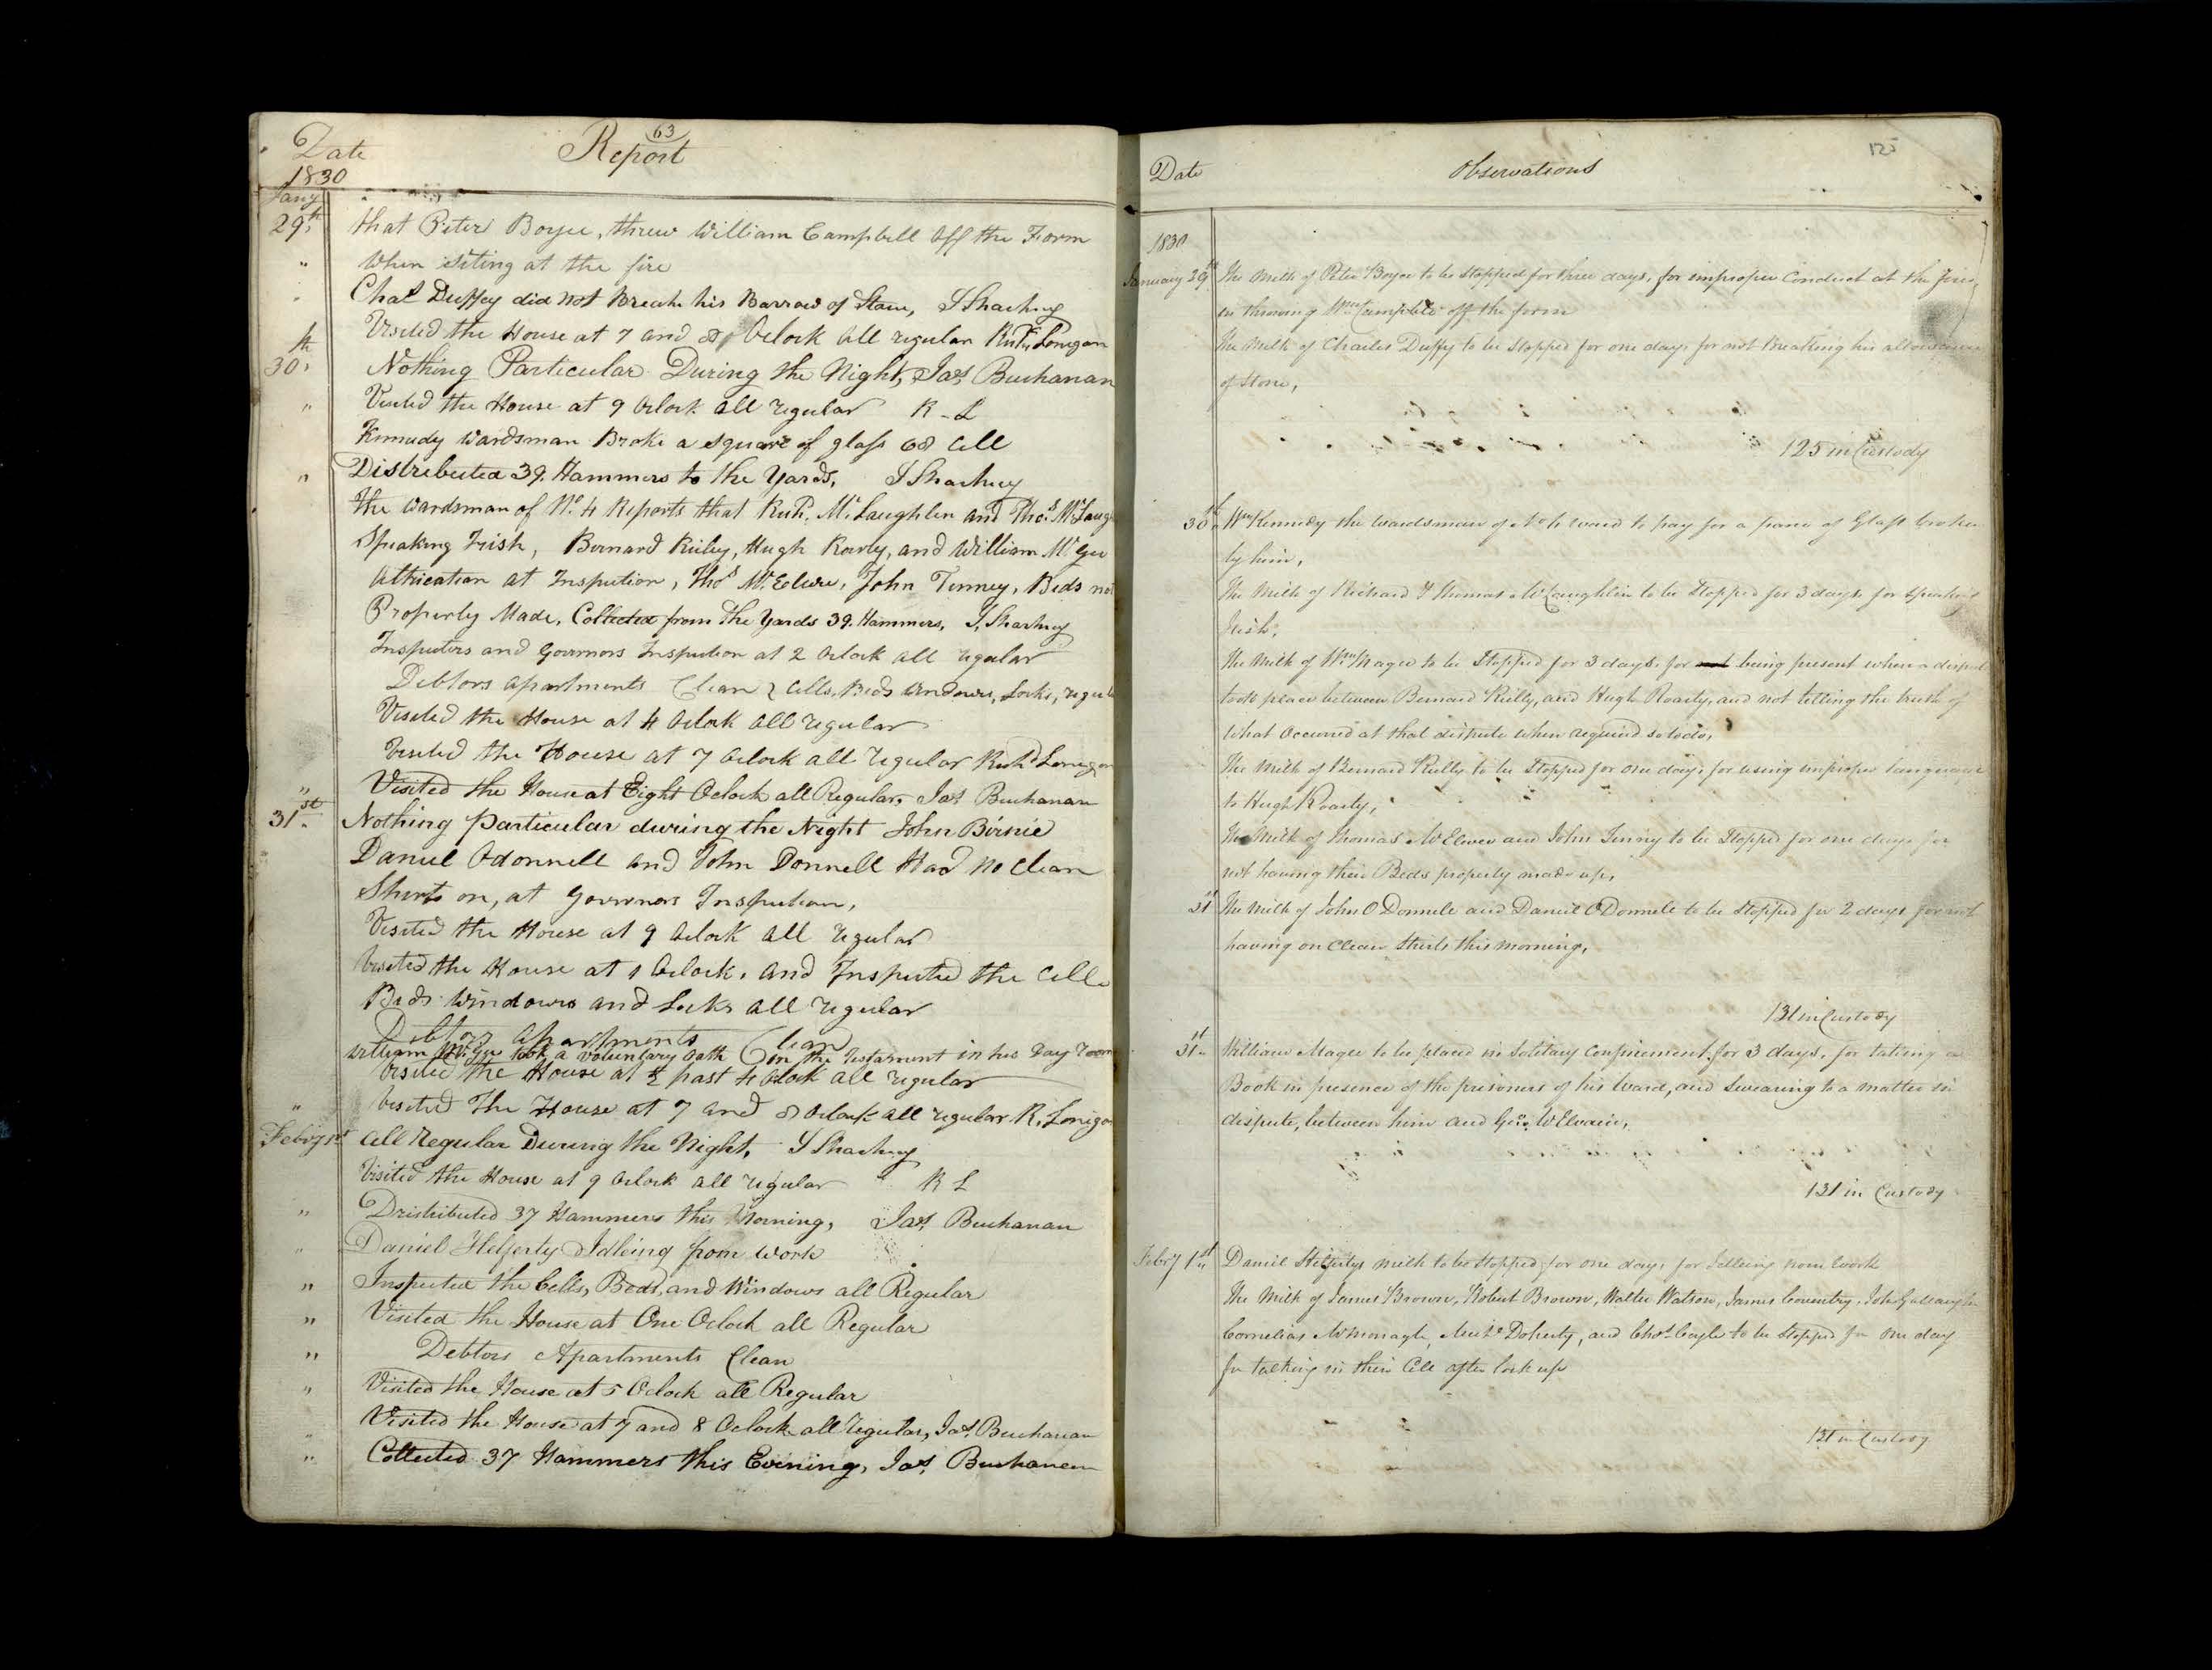 63
Date
Report
1830
Jany
29th
that Peter Boyce, threw William Campbell off the Form
When Siting at the fire
Chas Duffey did not Break his Barrow of Stone, J Sharkey
Visited the House at 7 and 8 Oclock all regular Richd Lonigan
30th
Nothing Particular During the Night, Jas Buchanan
Visited the House at 9 Oclock all regular R-L
Kennedy Wardsman Broke a square of glass 68 Cell
Distributed 39. Hammers to the Yards, J Sharkey
The Wardsman of No. 4 Reports that Richd. McLaughlin and Thos. McLaugh
Speaking Irish, Bernard Rieley, Hugh Roarty, and William McGee
Altrication at Inspection, Thos McElwee, John Tinney, Beds not
Properly Made, Collected from the Yards 39. Hammers, J, Sharkey
Inspectors and Governors Inspection at 2 Oclock all regular
Debtors apartments Clean Cells, Beds Windows, Locks, regular
Visited the House at 4 Oclock all regular
Visited the House at 7 Oclock all regular Richd Lonigan
Visited the House at Eight Oclock all Regular, Jas Buchanan
31st
Nothing particular during the Night John Birnie
Daniel Odonnell and John Donnell Had no Clean
Shirts on, at Governors Inspection,
Visited the House at 9 Oclock all regular
Visited the House at 1 Oclock, and Inspected the Cells
Beds Windows and Locks all regular
Debtors apartments Clean
William McGee took a voluntary Oath on the Testament in his Day Room
Visited the House at ½ past 4 Oclock all regular
Visited The House at 7 and 8 Oclock all regular R, Lonigan
Febry 1st
All Regular During the Night, J Sharkey
Visited the House at 9 Oclock all regular R L
Dristributed 37 Hammers this Morning, Jas, Buchanan
Daniel Helferty Idleing from work
Inspected the Cells, Beds, and Windows all Regular
Visited the House at One Oclock all Regular
Debtors Apartments Clean
Visited the House at 5 Oclock all Regular
Visited the House at 7 and 8 Oclock all regular, Jas, Buchanan
Collected 37 Hammers this Evening, Jas, Buchanan
125
Date
Observations
1830
January 29th
The Milk of Peter Boyce to be stopped for three days, for improper Conduct at the fire,
in throwing Wm Campbell off the form
The Milk of Charles Duffy to be Stopped for one day, for not Breaking his allowance
of Stone,
125 in Custody
30th
Wm Kennedy the Wardsman of No 4 ward to pay for a pane of Glass broken
by him,
The Milk of Richard & Thomas McLaughlin to be Stopped for 3 days, for speaking
Irish,
The Milk of Wm Magee to be Stopped for 3 days, for being present when a dispute
took place between Bernard Reilly, and Hugh Roarty, and not telling the truth of
what Occurred at that dispute when required so to do,
The Milk of Bernard Reilly to be Stopped for one day, for using improper language
to Hugh Roarty,
The Milk of Thomas McElwee and John Tinny to be Stopped for one day, for
not having their Beds properly made up,
31st
The Milk of John O Donnele and Daniel O Donnele to be Stopped for 2 days for not
having on Clean Shirts this morning,
131 in Custody
31st
William Magee to be placed in Solitary Confinement for 3 days, for taking a
Book in presence of the prisoners of his ward, and Swearing to a matter in
dispute, between him and Geo. McElvain,
131 in Custody
Febry 1st
Daniel Helferty's milk to be stopped for one day, for Idleing from work
The Milk of James Brown, Robert Brown, Walter Watson, James Coventry, John Gallaugher
Cornelias McMonagle, Doherty, and Chas Coyle to be Stopped for One day
for talking in their Cell after lock up
131 in Custody